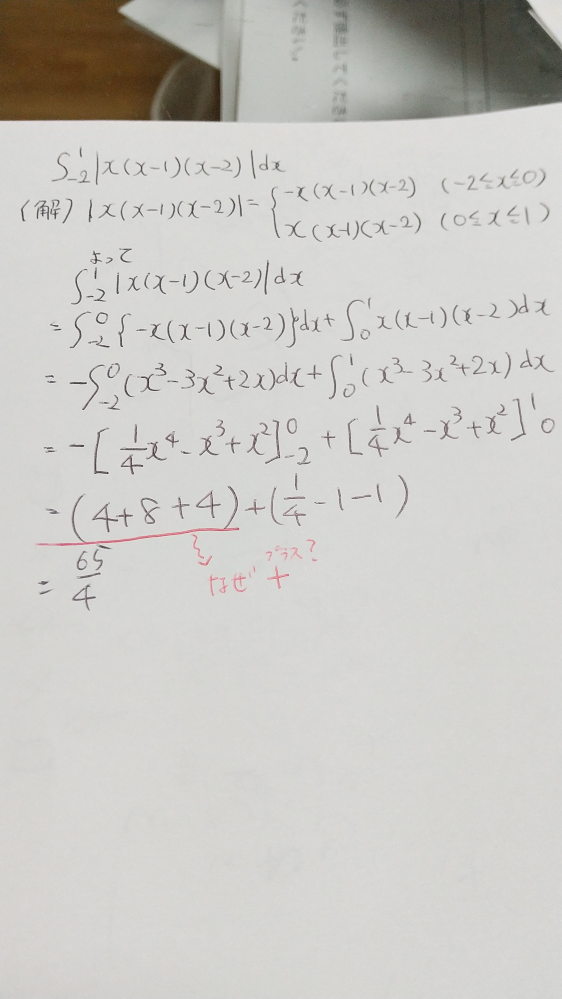 ∫₋₂¹|x(x-1)(x-2)|dx
(解) |x(x-1)(x-2)| = { -x(x-1)(x-2) (-2≦x≦0)
x(x-1)(x-2) (0≦x≦1)
よって
∫₋₂¹|x(x-1)(x-2)|dx
=∫₋₂⁰{-x(x-1)(x-2)}dx+∫₀¹x(x-1)(x-2)dx
=-∫₋₂⁰(x³-3x²+2x)dx+∫₀¹(x³-3x²+2x)dx
=-[1/4x⁴-x³+x²]⁰₋₂+[1/4x⁴-x³+x²]¹₀
=(4+8+4)+(1/4-1-1)
プラス?
なぜ +
=65/4